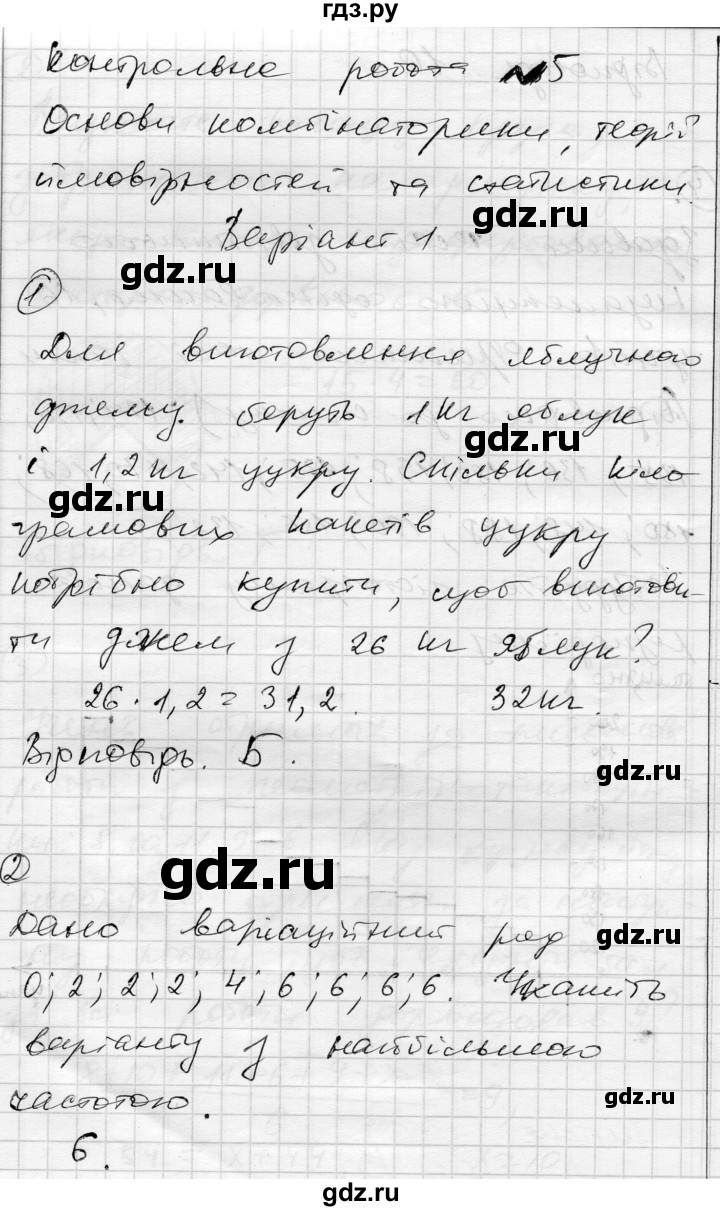 гдз.ру
Контрольна робота №5
Основи комбінаторики, теорії
ймовірностей та статистики
gdz.ru
Варіант 1
gdz.ru
1
Для виготовлення яблучного
джему беруть 1 кг яблук
gdz.ru
і 1,2 кг цукру. Скільки кіло
gdz.ru
грамових пакетів цукру
потрібно купити, щоб виготови-
ти джем з 26 кг яблук?
26 · 1,2 = 31,2. 32 кг.
Відповідь. Б.
gdz.ru
2
gdz.ru
Дано варіаційний ряд
gdz.ru
0; 2; 2; 2; 4; 6; 6; 6; 6. Укажіть
варіанту з найбільшою
частотою.
gdz.ru
6.
gdz.ru